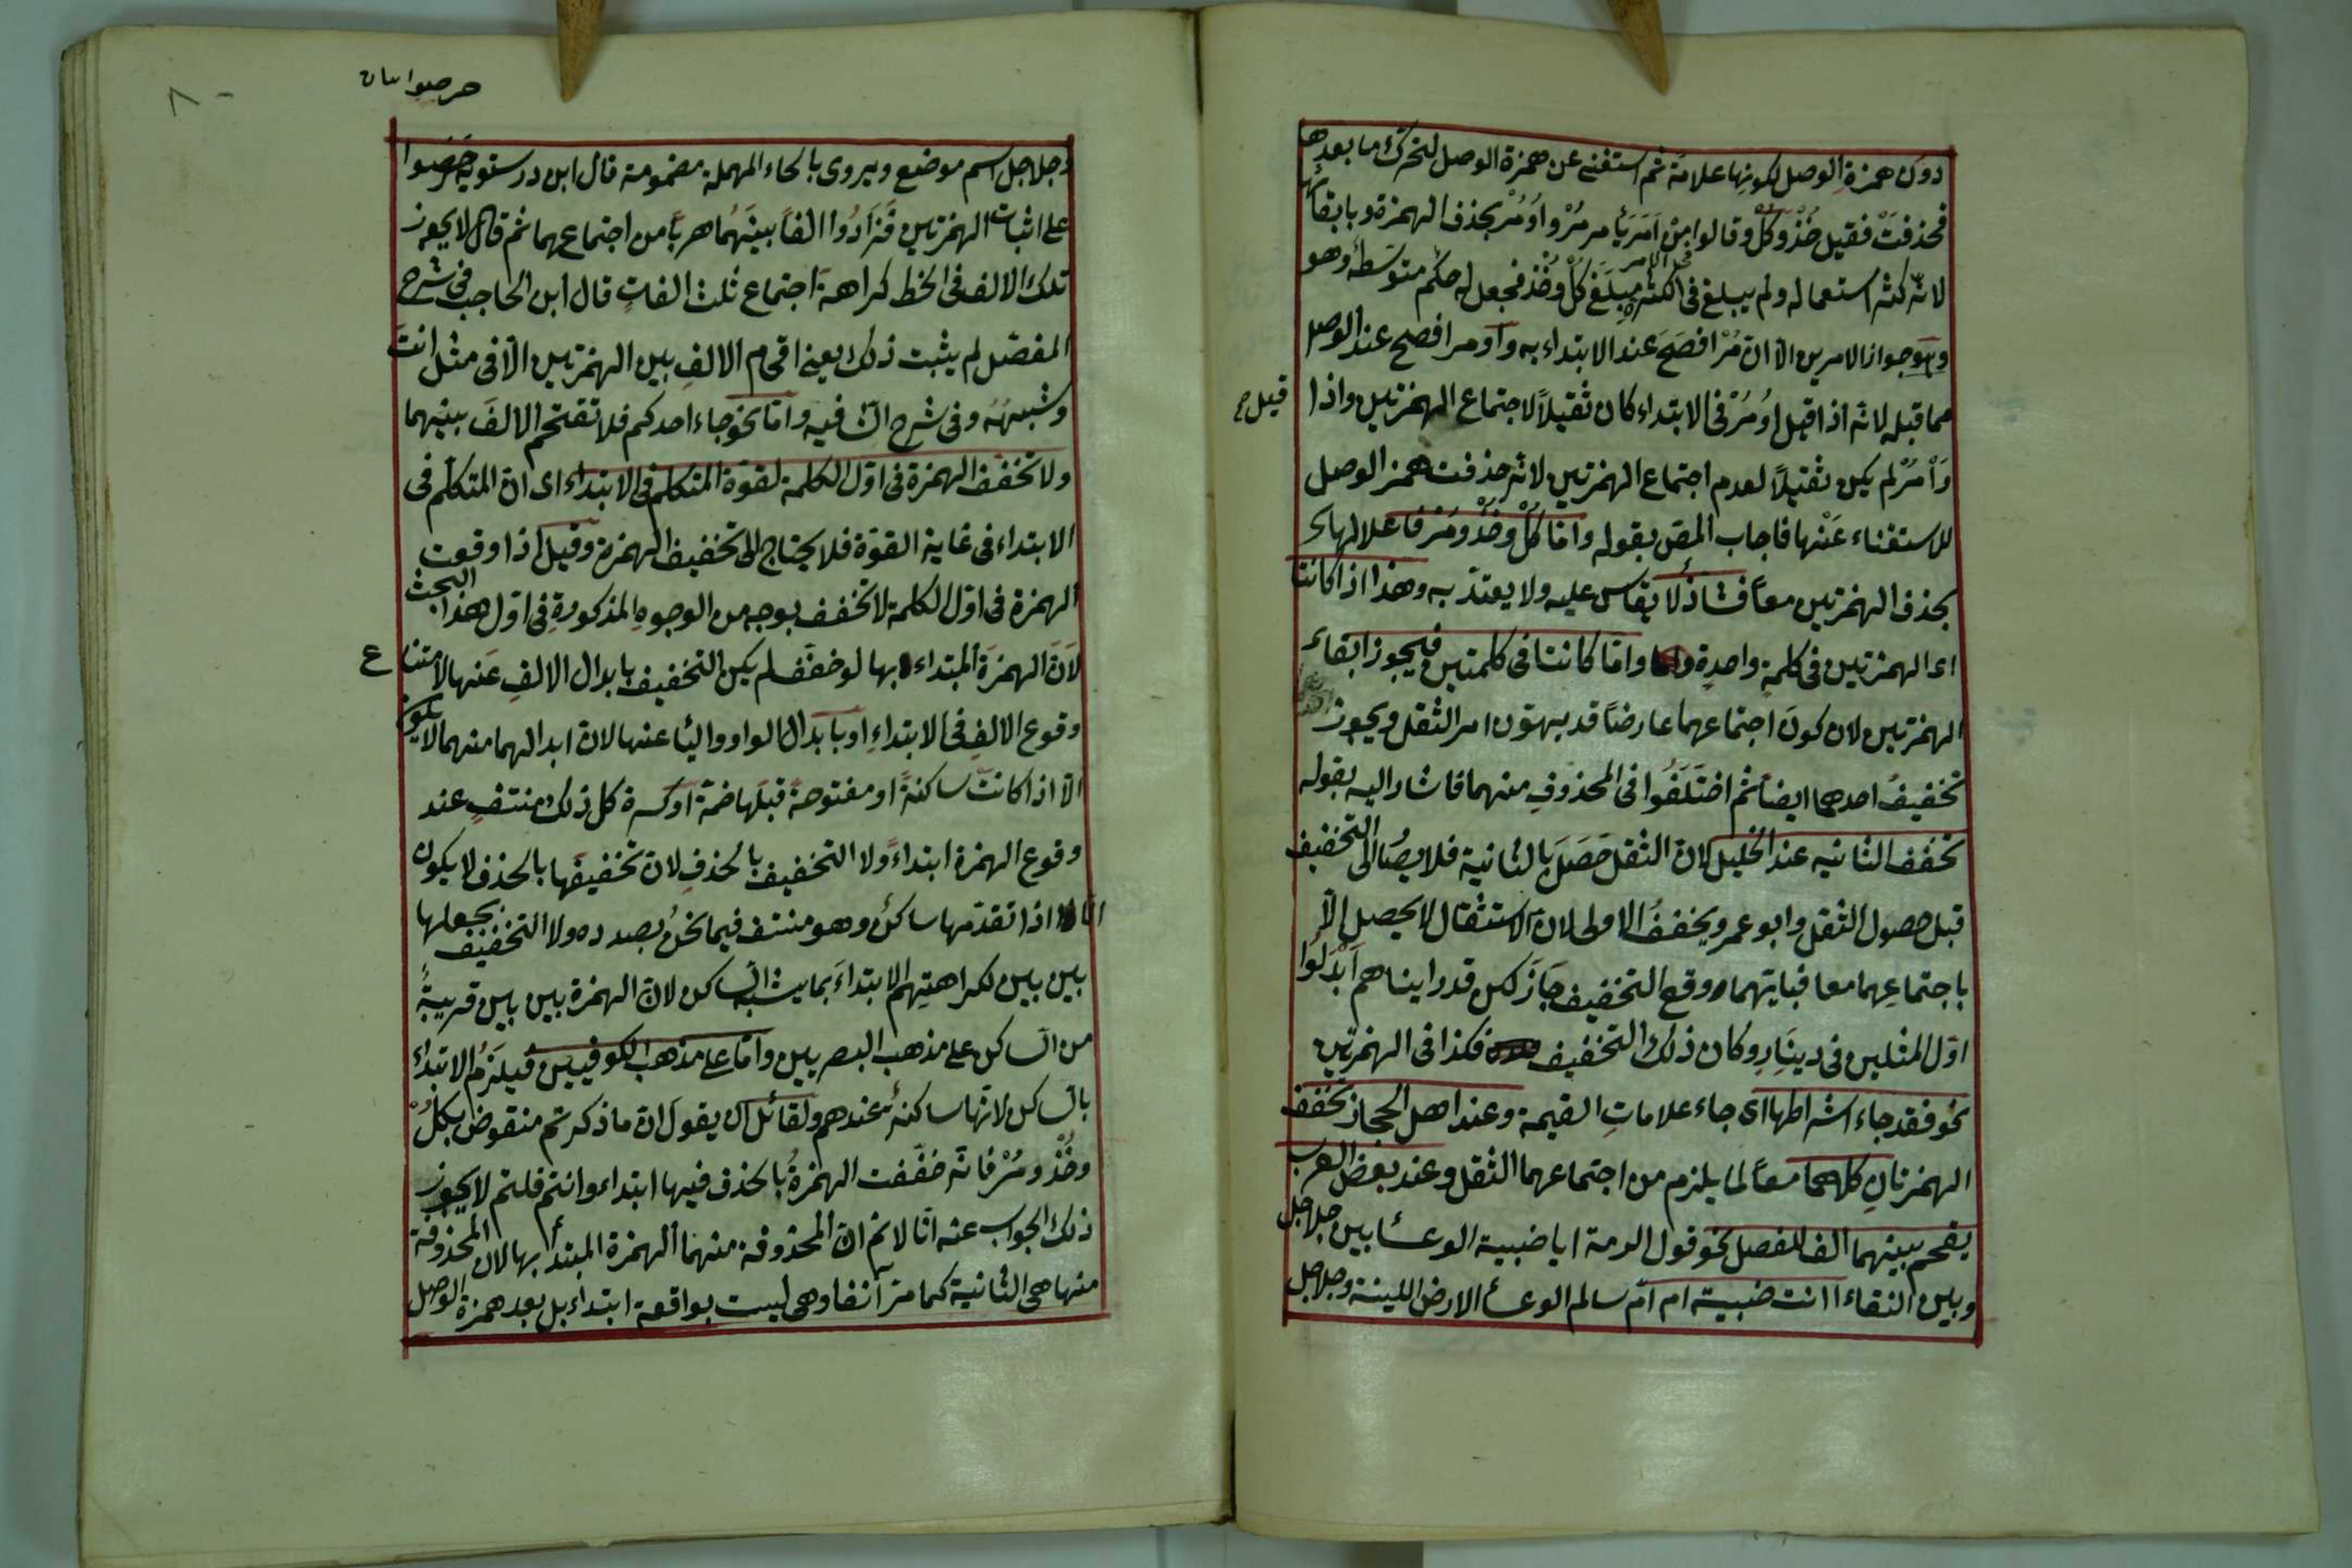 دون همزة الوصل لكونها علامة ثم استغنى عن همزة الوصل لتحرك ما بعدها
فحذفت فقيل خُذْ وكُلْ وقالوا من اَمَرَ يأمر مُرْ واُومُرْ بحذف الهمزة وبابقائها
فى الامر
لانه كثر استعماله ولم يبلغ فى الكثرة مبلغ كُلْ وخُذْ فجعل له حكم متوسط وهو
وهو جواز الامرين الا ان مُرْ افصح عند الابتداء به وأومر افصح عند الوصل
مما قبله لانه اذا قيل اُومُرْ فى الابتداء كان ثقيلاً لاجتماع الهمزتين واذا
قيل صح
وَأْمُرْ لم يكن ثقيلاً لعدم اجتماع الهمزتين لانه حذفت همز الوصل
للاستغناء عَنْها فاجاب المصَ بقوله وامّا كُلْ وخُذْ ومُرْ
بحذف الهمزتين معاً فشاذٌ لا يقاس عليه ولا يعتد به وهذا اذا كانتا
اى الهمزتين فى كلمةٍ واحدةٍ وامّا كانتا فى كلمتين فيجوز ابقاء
الهمزتين لان كونَ اجتماعهما عارضاً قد يهوّن امر الثقل ويجوز
تخفيفُ احدهما ايضاً ثم اختَلَفُوا فى المحذوفِ منهما فاشار اليه بقوله
تخفف الثانيه عند الخليل لان الثقل حَصَلَ بالثانية فلا يصُار الى التخفيف
قبل حصول الثقل وابو عمرو يخففُ الاولى لان الاستثقال لا يحصل الا
باجتماعِهما معا فبايتهما وقع التخفيف جَازَ لكن قد راينا هم اَبْدَلُوا
اوّل المثلين فى دينَارٍ وكان ذلك التخفيف فكذا فى الهمزتين
نحو فقد جاء اشراطها اى جاء علاماتِ القيمة وعند اهل الحجاز تخفف
الهمزتانِ كلاهما معاً لما يلزم من اجتماعهما الثقل وعند بعض العرب
يقحم بينهما الف للفصل نحو قول الرمة ايا ضبية الوعسا بين جلاجل
وبين النقاء اانت ضبية ام امّ سالم الوعسأ الارض اللينة وجلاجل
حرصوا بيان
وجلاجل اسم موضع ويروى بالحاء المهملة مضمومة قال ابن درستويه حَرَصُوا
على اثبات الهمزتين فَزَادُوا الفاً بينَهُما هرباً من اجتماعهما ثم قال لا يجوز
تلك الالف فى الخط كراهة اجتماع ثلث الفاتٍ قال ابن الحاجب فى شرح
المفصّل لم يثبت ذلك يعنى اقحام الالفِ بين الهمزتين الّا فى مثل اانت
وشبههُ وفى شرح الشافيه وامّا نحو جاء احدكم فلا تقتحم الالفَ بينهما
ولا تخفّف الهمزة فى اوّل الكلمة لقوّة المتكلم فى الابتداء اى انّ المتكلّم فى
الابتداء فى غاية القوّة فلا يحتاج الى تخفيف الهمزة وقيل اذا وقعت
الهمزة فى اوّل الكلمة لا تخفف بوجه من الوجوهِ المذكورةِ فى اول هذا البحث
لاَنّ الهمزَة المبتداء بها لو خفّف لم يكن التخفيف بابدال الالفِ عَنها لامتناع
وقوع الالفِ فى الابتداءِ او بابدال الواو واليا عنها لان ابدالهما منهما لا يكون
الّا اذا كانت ساكنةً او مفتوحةً قبلَها ضمة او كسرة كل ذلك منتفٍ عند
وقوع الهمزة ابتداءً ولا التخفيف بالحذفِ لان تخفيفَها بالحذف لا يكون
الا اذا تقدّمها ساكنٌ وهو منتف فيما نحنُ بصدده ولا التخفيف بجعلها
بين بين لكراهتِهم الابتداءَ بما يشبه الساكن لان الهمزة بين بين قريبةٌ
من الساكن على مذهب البصريين وامّا على مذهب الكوفيين فيلزَمُ الابتداء
بالساكن لانّها ساكنةٌ عندهم ولقائل ان يقول ان ما ذكرتم منقوض بكُلْ
وخُذْ ومُرْ فانّه خفّفت الهمزةُ بالحذف فيها ابتداء وانتم قلتم لا يجوز
ذلك الجواب عنه انّا لا نم ان المحذوفة منهما الهمزة المبتدأ بها لان المحذوفة
منها هى الثانية كما مرّ آنفا وهى ليست بواقعة ابتداء بل بعد همزة الوصل